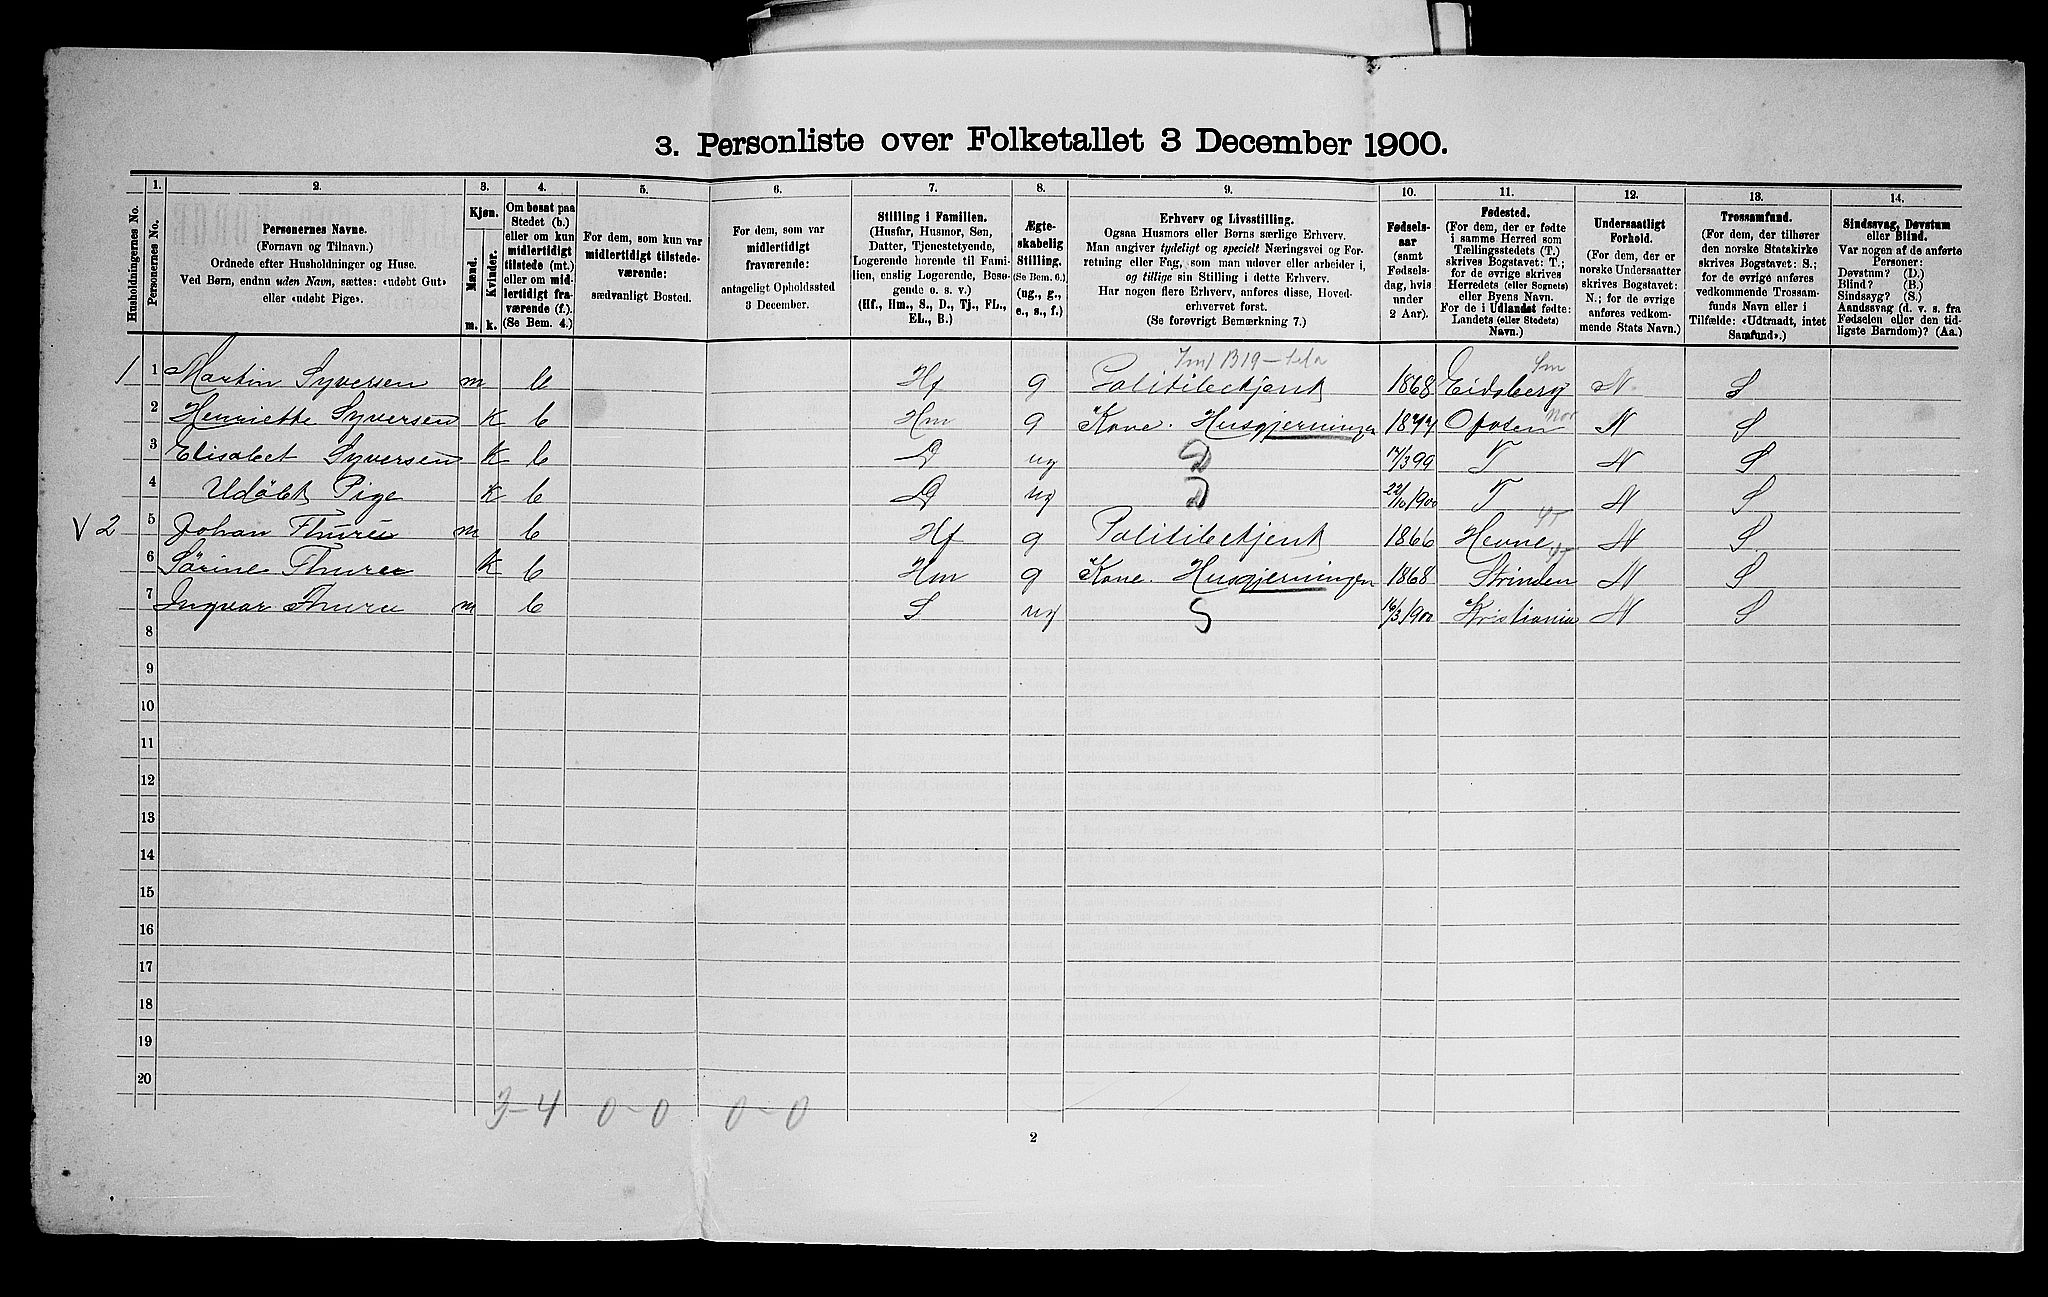 3. Personliste over Folketallet 3 December 1900.
1. 2. 3. 4. 5. 6. 7. 8. 9. 10. 11. 12. 13. 14.
Husholdningernes No.
Personernes No.
Personernes Navne.
(Fornavn og Tilnavn.)
Ordnede efter Husholdninger og Huse.
Ved Børn, endnu uden Navn, sættes: «udøbt Gut»
eller «udøbt Pige».
Kjøn.
Mænd.
Kvinder.
m. k.
Om bosat paa
Stedet (b.)
eller om kun
midlertidigt
tilstede (mt.)
eller om mid-
lertidigt fra-
værende (f.).
(Se Bem. 4.)
For dem, som kun var
midlertidigt tilstede-
værende:
sædvanligt Bosted.
For dem, som var
midlertidigt
fraværende:
antageligt Opholdssted
3 December.
Stilling i Familien.
(Husfar, Husmor, Søn,
Datter, Tjenestetyende,
Logerende hørende til Fami-
lien, enslig Logerende, Besø-
gende o. s. v.)
(Hf., Hm., S., D., Tj., FL.,
EL., B.)
Ægte-
skabelig
Stilling.
(Se Bem. 6.)
(ug., g.,
e., s., f.)
Erhverv og Livsstilling.
Ogsaa Husmors eller Børns særlige Erhverv.
Man angiver tydeligt og specielt Næringsvei og For-
retning eller Fag, som man udøver eller arbeider i,
og tillige sin Stilling i dette Erhverv.
Har nogen flere Erhverv, anføres disse, Hoved-
erhvervet først.
(Se forøvrigt Bemærkning 7.)
Fødsels-
aar
(samt
Fødsels-
dag, hvis
under
2 Aar).
Fødested.
(For dem, der er fødte
i samme Herred som
Tællingsstedets (T.)
skrives Bogstavet: T.;
for de øvrige skrives
Herredets (eller Sognets)
eller Byens Navn.
For de i Udlandet fødte:
Landets (eller Stedets)
Navn.)
Undersaatligt
Forhold.
(For dem, der er
norske Undersaatter
skrives Bogstavet:
N.; for de øvrige
anføres vedkom-
mende Stats Navn.)
Trossamfund.
(For dem, der tilhører
den norske Statskirke
skrives Bogstavet: S.;
for de øvrige anføres
vedkommende Trossam-
funds Navn eller i
Tilfælde: «Udtraadt, intet
Samfund».)
Sindssvag, Døvstum
eller Blind.
Var nogen af de anførte
Personer:
Døvstum? (D.)
Blind? (B.)
Sindssyg? (S.)
Aandssvag (d. v. s. fra
Fødselen eller den tid-
ligste Barndom)? (Aa.)
B 19 Sm
1 1 Martin Syversen m b Hf g Politibetjent 1868 Eidsberg N S
Nor
2 Henriette Syversen k b Hm g Kone. Husgjerningen 1877 Ofoten N S
3 Elisabet Syversen k b D ug D 17/3 99 T N S
4 Udöbt Pige k b D ug D 22/10 1900 T N S
ST
V 2 5 Johan Thureu m b Hf g Politibetjent 1866 Hevne N S
ST
6 Sörine Thureu k b Hm g Kone. Husgjerningen 1868 Strinden N S
7 Ingvar Thureu m b S ug S 16/3 1900 Kristiania N S
8
9
10
11
12
13
14
15
16
17
18
19
20
3-4 0-0 0-0
2